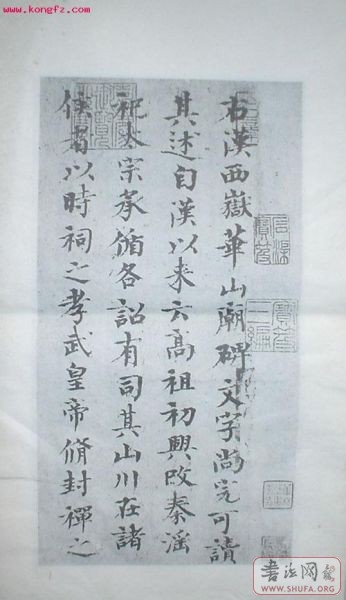 www.kongfz.com
右漢西嶽華山廟碑文字尚完可讀
其述自漢以來云高祖初興改秦淫
祀太宗承循各詔有司其山川在諸
侯者以時祠之孝武皇帝脩封禪之
書法网
WWW.SHUFA.ORG